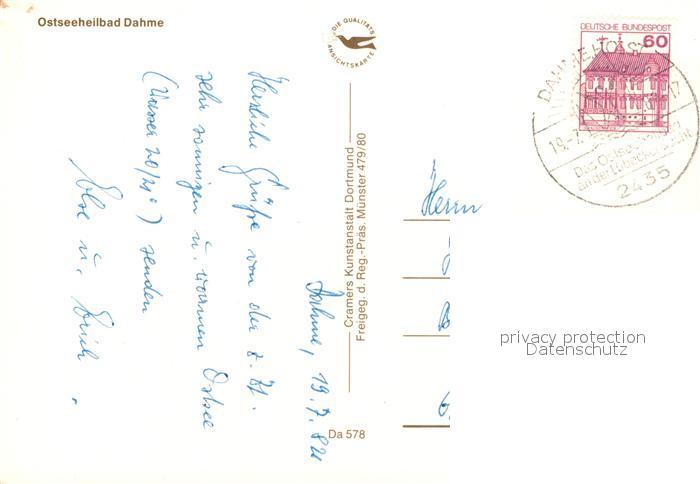 Ostseeheilbad Dahme
DIE QUALITÄTS
ANSICHTSKARTE
DEUTSCHE BUNDESPOST
60
DAHME, HOLST
19.-7.
17
Das Ostseeheilbad
an der Lübecker Bucht
2435
Dahme, 19.7.82
Herzliche Grüße von der z. Zt.
sehr sonnigen u. warmen Ostsee
(Wasser 20/21°) senden
Else u. Erich.
Cramers Kunstanstalt Dortmund
Freigeg. d. Reg.-Präs. Münster 479/80
Da 578
Herrn
privacy protection
Datenschutz